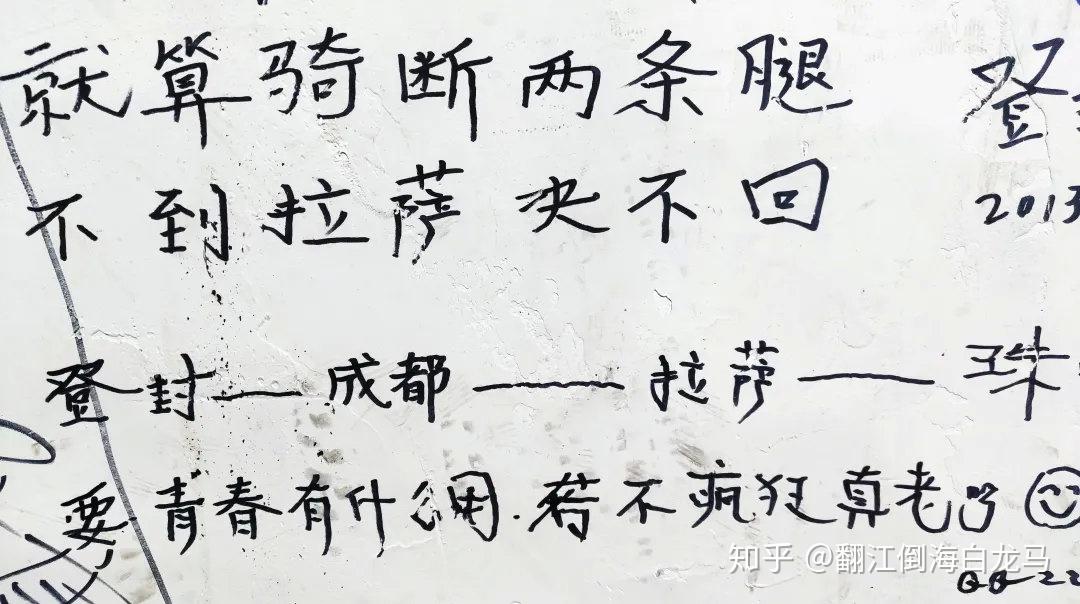 就算骑断两条腿 登
不到拉萨决不回 2013
登封——成都——拉萨——珠
要青春有什么用.若不疯狂真老了
知乎 @翻江倒海白龙马
QQ 22